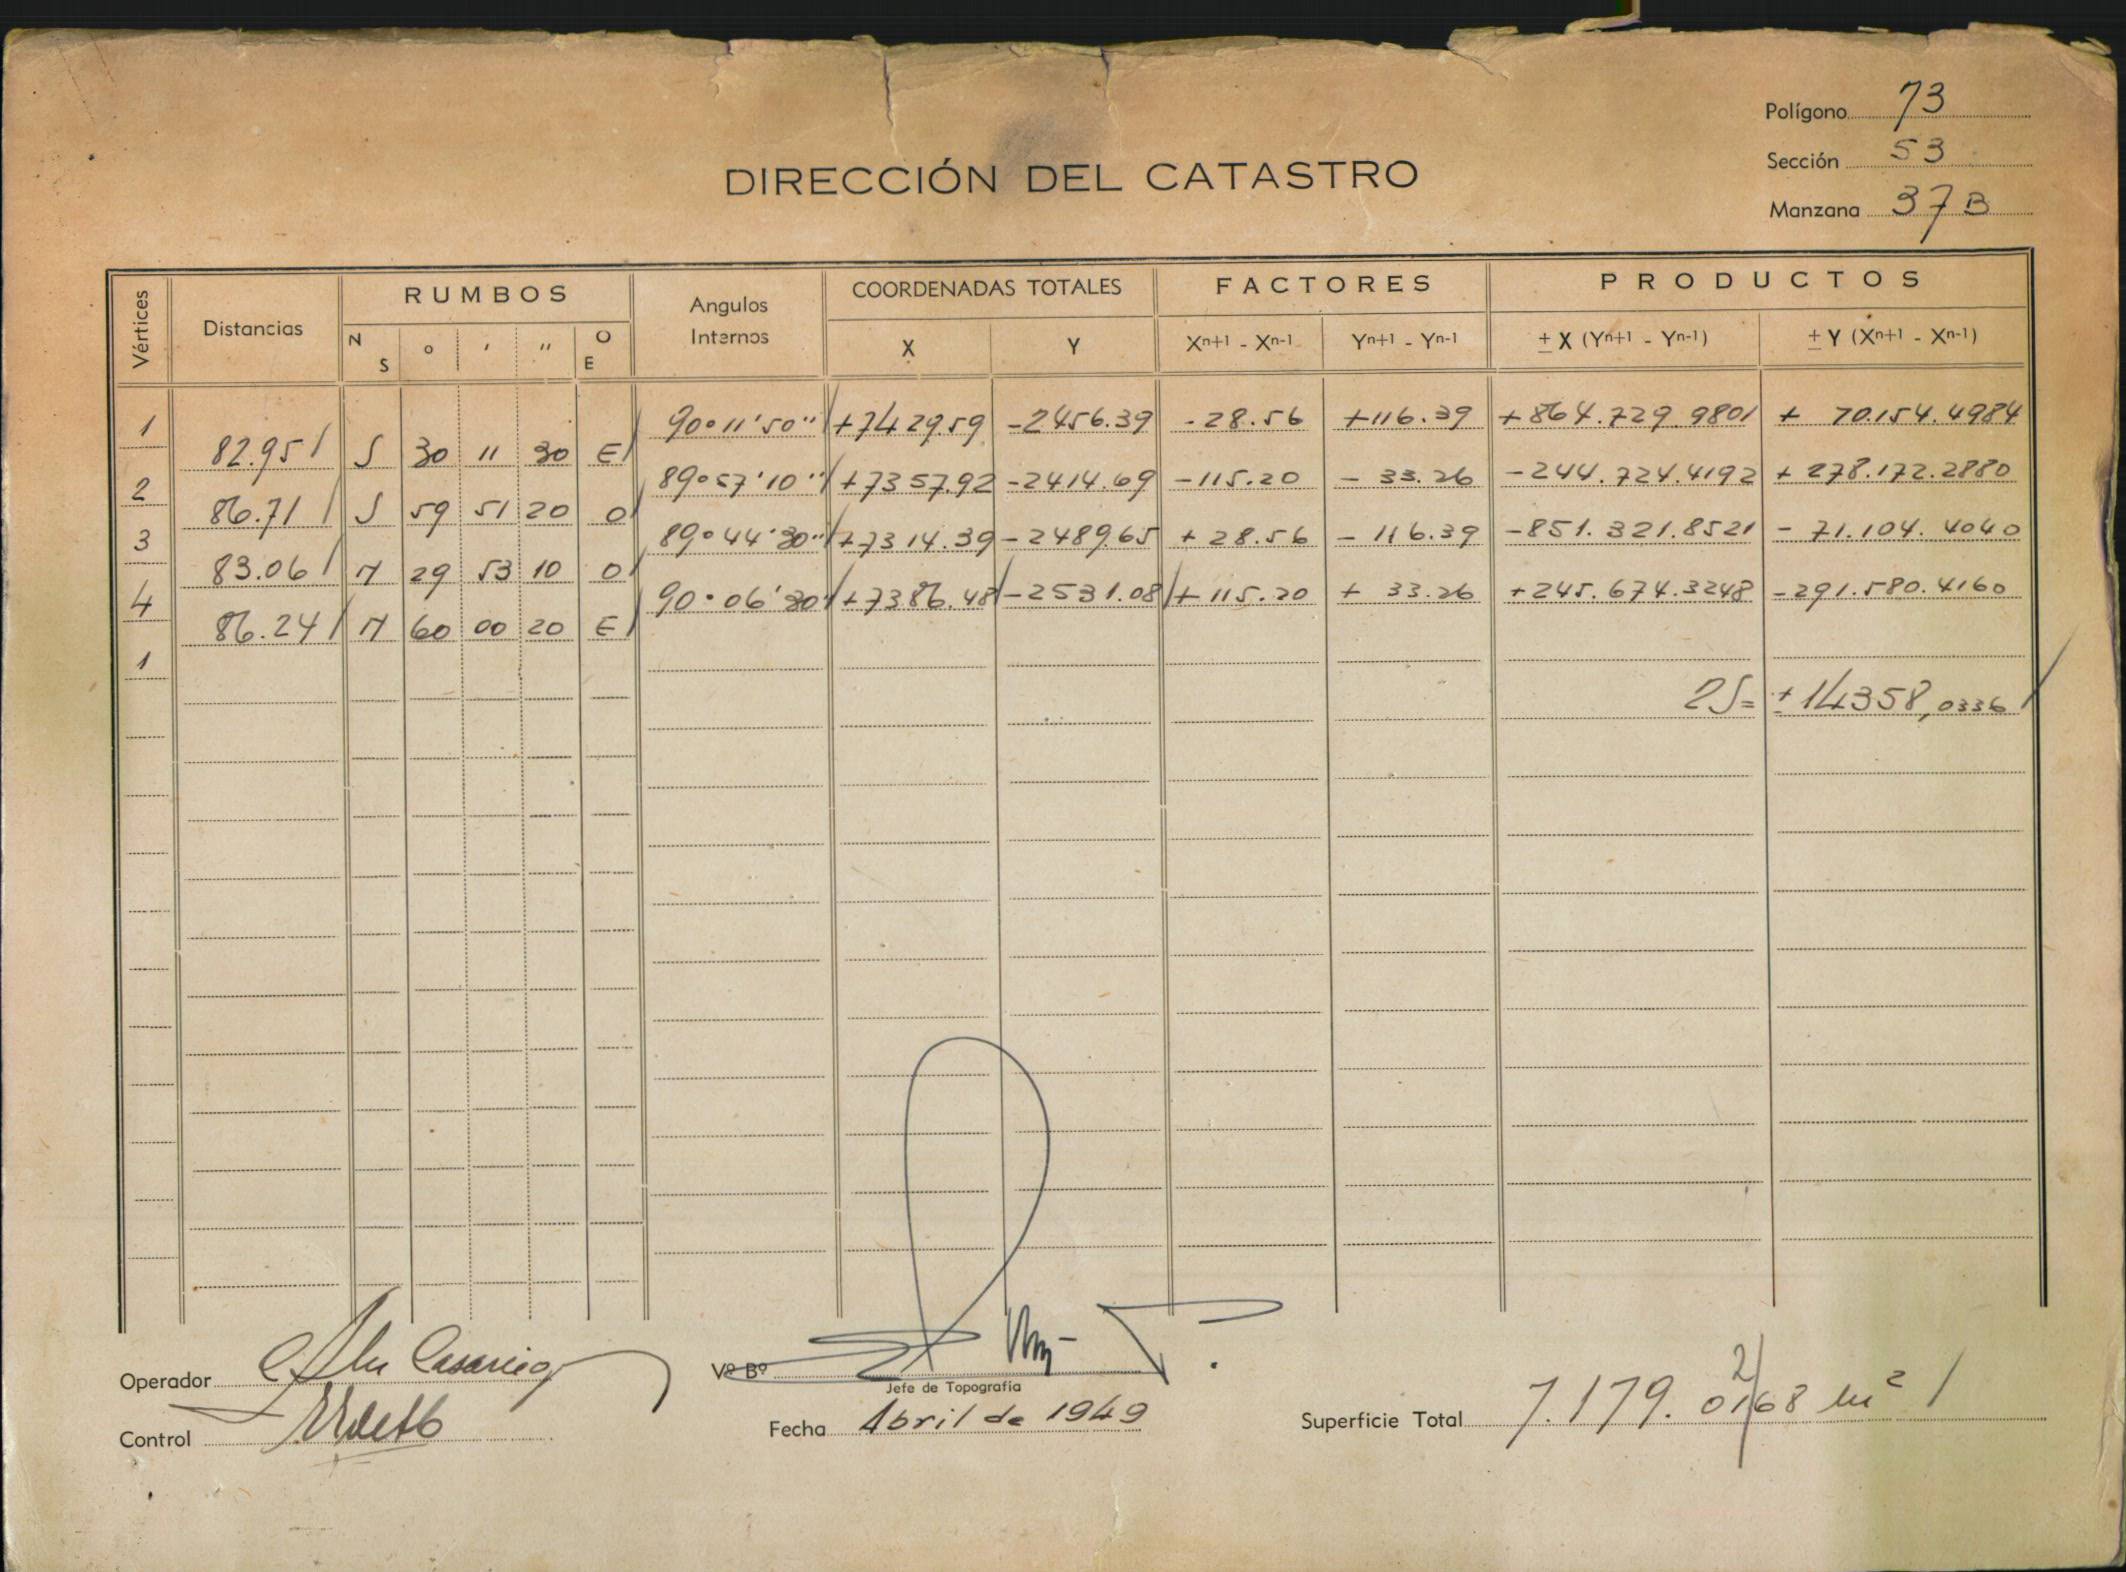 Polígono 73
Sección 53
DIRECCIÓN DEL CATASTRO
Manzana 37 B
Vértices Distancias RUMBOS Angulos Internos COORDENADAS TOTALES FACTORES PRODUCTOS
N S o ' '' O E X Y Xn+1 - Xn-1 Yn+1 - Yn-1 ± X (Yn+1 - Yn-1) ± Y (Xn+1 - Xn-1)
1 90°11'50'' +7429.59 -2456.39 -28.56 +116.39 +864.729.9801 + 70.154.4984
82.95 S 30 11 30 E
2 89°57'10'' +7357.92 -2414.69 -115.20 - 33.26 -244.724.4192 + 278.172.2880
86.71 S 59 51 20 O
3 89°44'30'' +7314.39 -2489.65 +28.56 - 116.39 -851.321.8521 - 71.104.4040
83.06 N 29 53 10 O
4 90°06'30'' +7386.48 -2531.08 + 115.20 + 33.26 +245.674.3248 -291.580.4160
86.24 N 60 00 20 E
1
2S= +14358,0336
Operador
Vº Bº
Jefe de Topografía
Control
Fecha Abril de 1949
Superficie Total 7.179.0168 m²
2